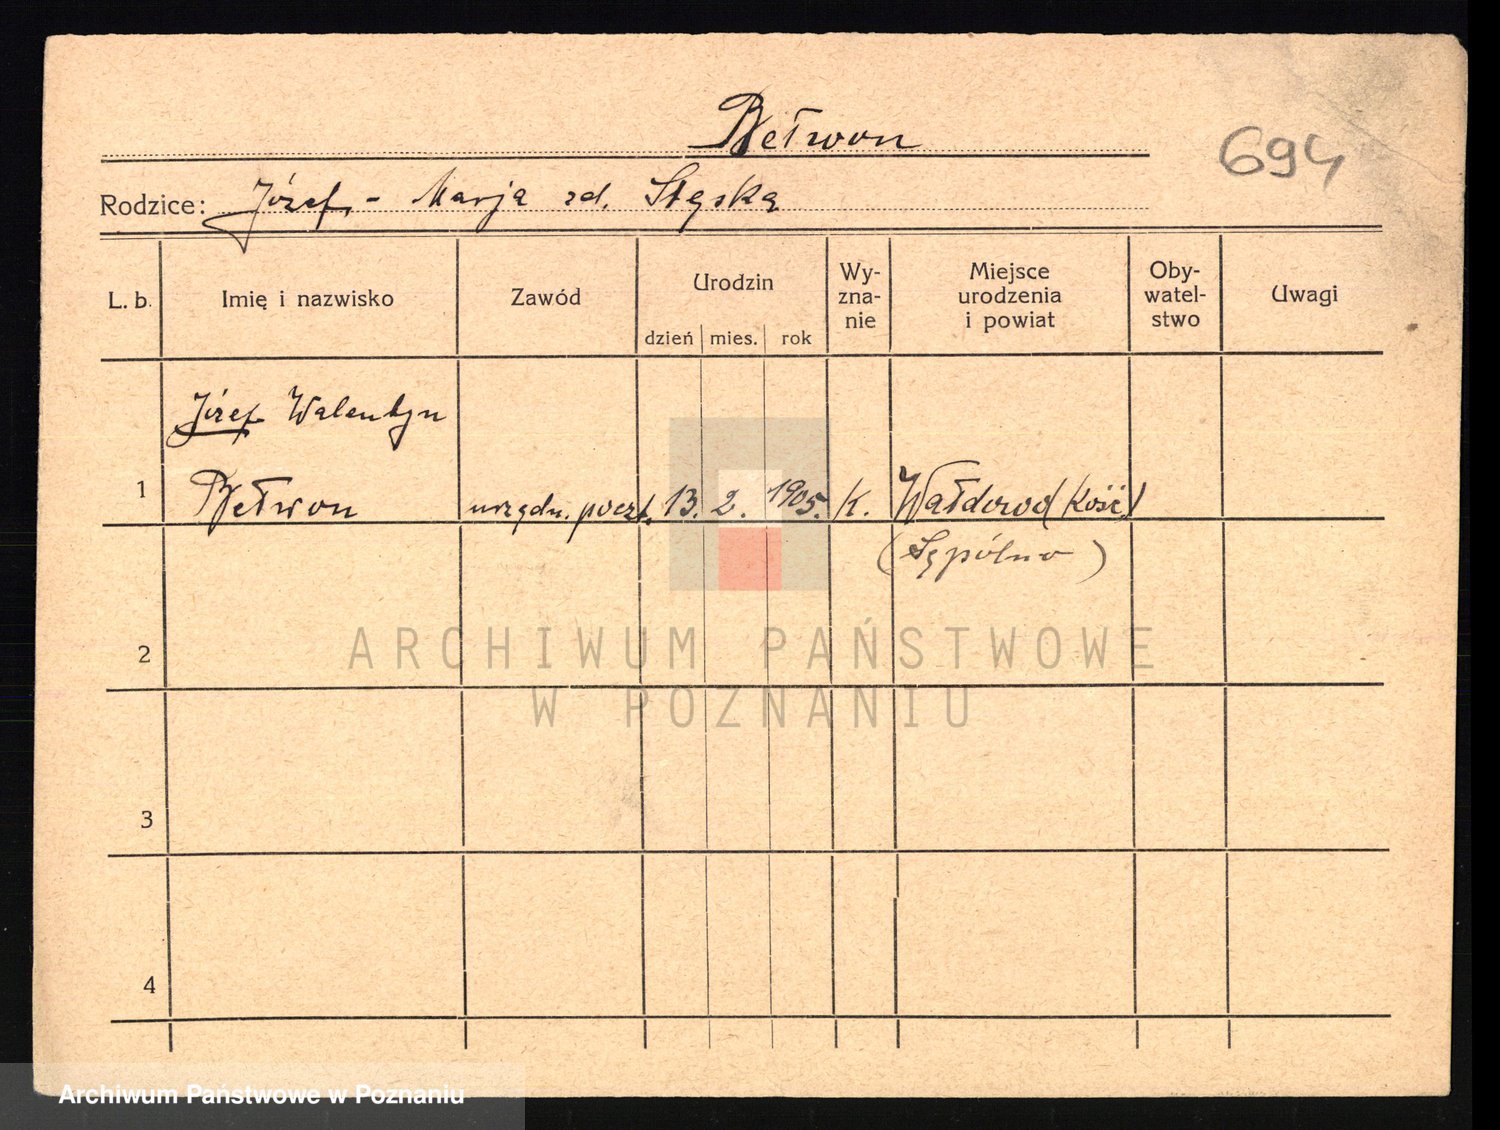 Bełwon
694
Rodzice: Józef - Marja zd. Stęska
L. b.
Imię i nazwisko
Zawód
Urodzin
dzień mies. rok
Wy-
zna-
nie
Miejsce
urodzenia
i powiat
Oby-
watel-
stwo
Uwagi
Józef Walentyn
1 Bełwon urzędn. poczt. 13. 2. 1905. k.
(Sępólno)
2
3
4
ARCHIWUM PAŃSTWOWE
W POZNANIU
Archiwum Państwowe w Poznaniu